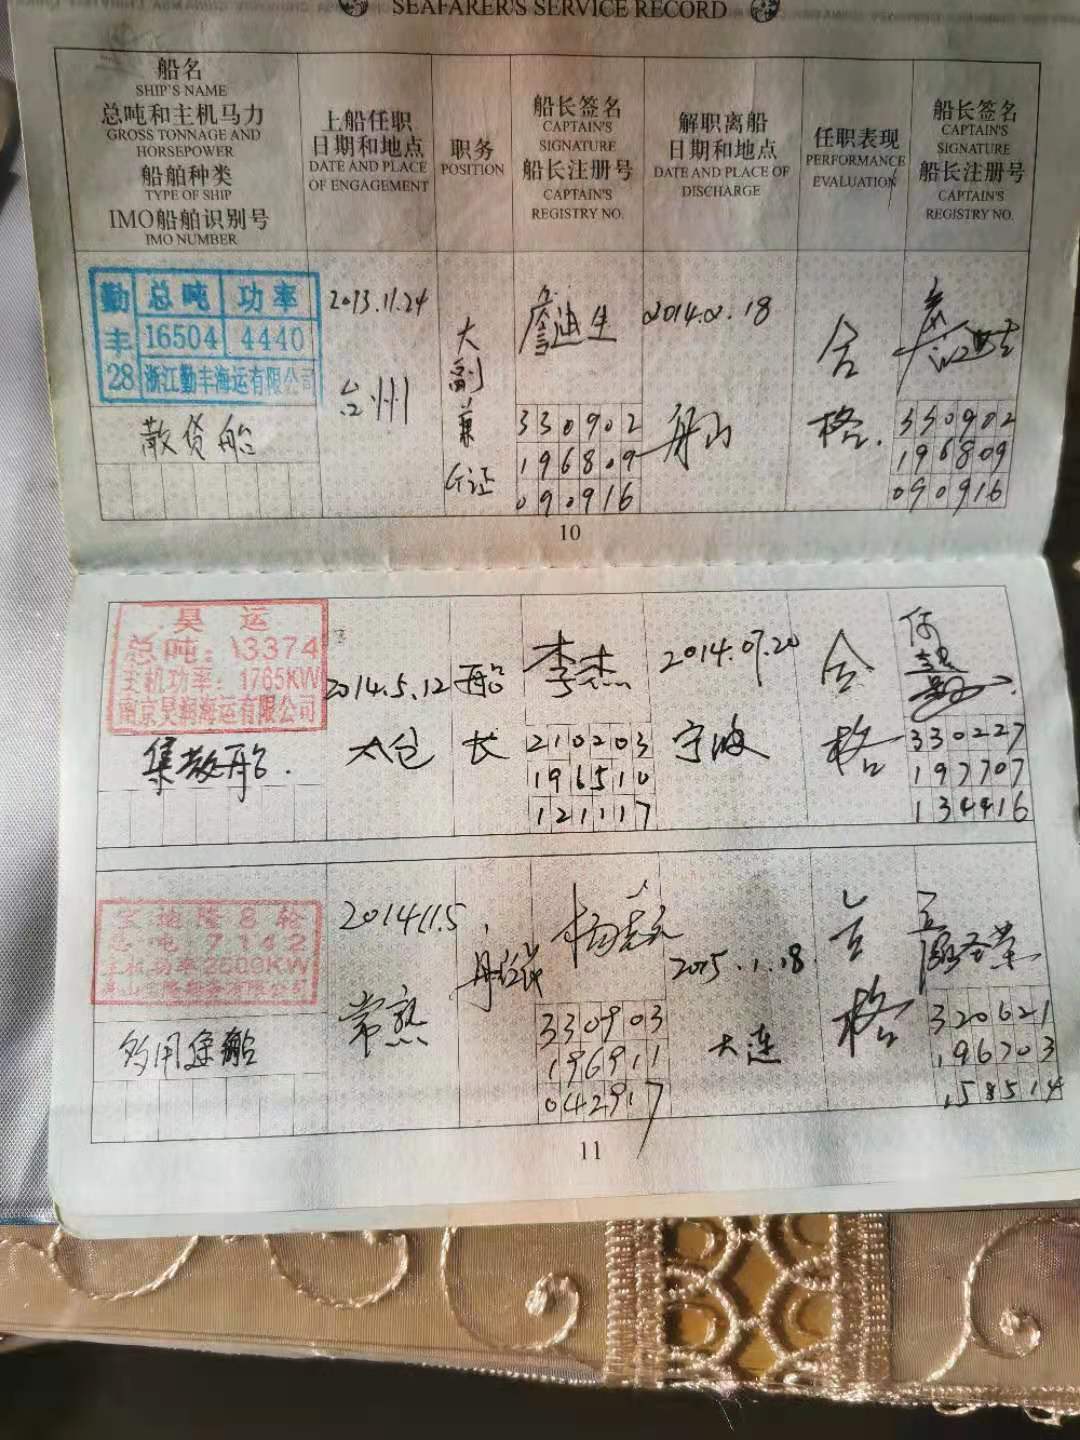 SEAFARER'S SERVICE RECORD
船名
SHIP'S NAME
总吨和主机马力
GROSS TONNAGE AND
HORSEPOWER
船舶种类
TYPE OF SHIP
IMO船舶识别号
IMO NUMBER
上船任职
日期和地点
DATE AND PLACE
OF ENGAGEMENT
职务
POSITION
船长签名
CAPTAIN'S
SIGNATURE
船长注册号
CAPTAIN'S
REGISTRY NO.
解职离船
日期和地点
DATE AND PLACE OF
DISCHARGE
任职表现
PERFORMANCE
EVALUATION
船长签名
CAPTAIN'S
SIGNATURE
船长注册号
CAPTAIN'S
REGISTRY NO.
勤丰28
总吨 功率
16504 4440
浙江勤丰海运有限公司
散货船
2013.11.24
台州
大副兼
詹迪生
330902
196809
090916
2014.2.18
舟山
合格.
330902
196809
090916
10
昊运
总吨:13374
主机功率:1765KW
南京昊润海运有限公司
集散船.
2014.5.12
太仓
船长
李杰
210203
196510
121117
2014.07.20
宁波
合格
330227
197707
134416
宝迪隆8轮
总吨7142
主机功率2500KW
多用途船
2014.11.5
常熟
330903
196911
042917
2015.1.18.
大连
合格
320621
196703
158514
11